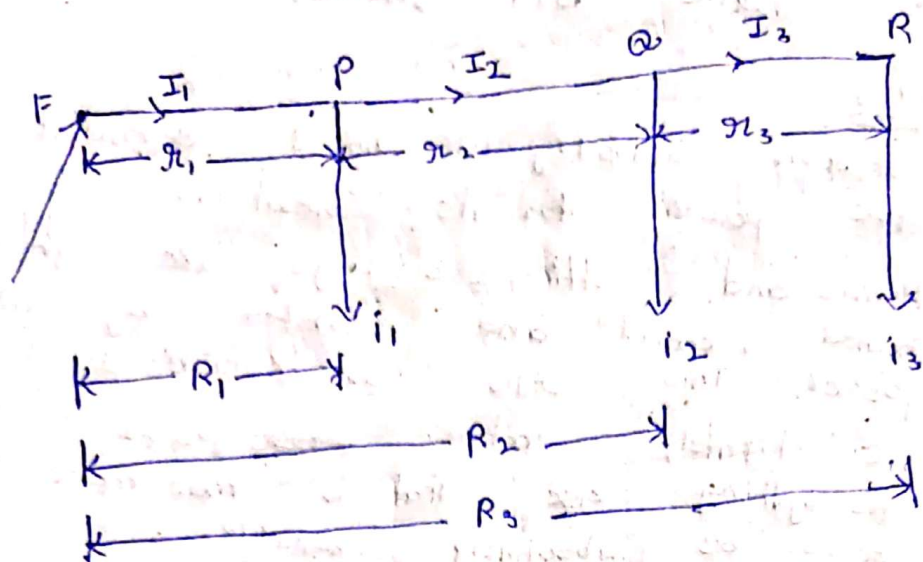 F I₁ P I₂ Q I₃ R
r₁ r₂ r₃
i₁ i₂ i₃
R₁
R₂
R₃